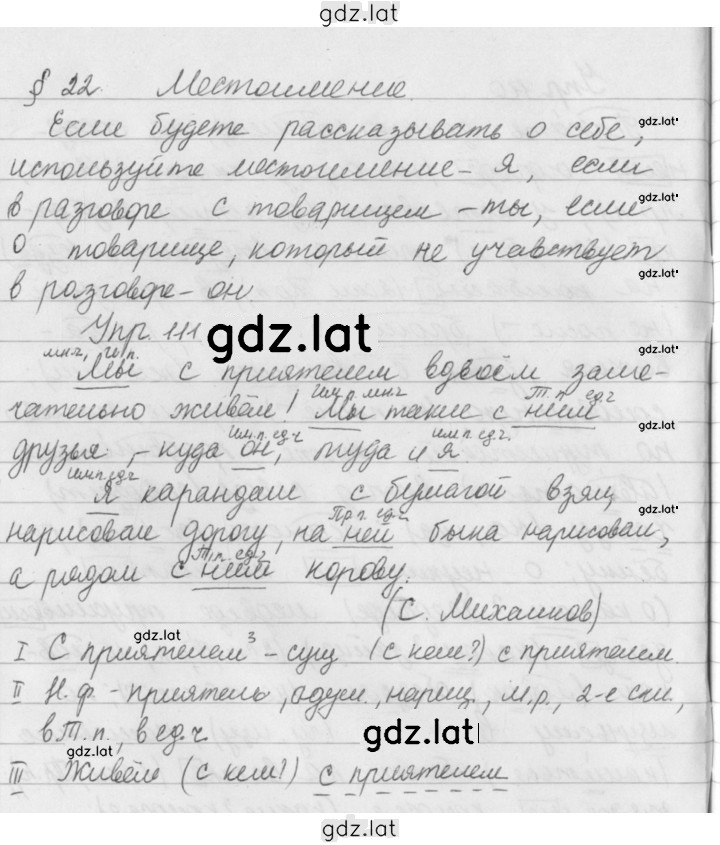 gdz.lat
§ 22. Местоимение.
Если будете рассказывать о себе, gdz.lat
используйте местоимение - Я, если
в разговоре с товарищем - ты, если gdz.lat
о товарище, который не учавствует
в разговоре - он gdz.lat
Упр. 111 gdz.lat
мн.ч., И.п. gdz.lat
Мы с приятелем вдвоём заме-
Им.п. мн.ч Т.п. ед.ч
чательно живём! Мы такие с ним gdz.lat
Им.п. ед.ч Им.п. ед.ч. gdz.lat
друзья, - куда он, туда и я
Им.п. ед.ч gdz.lat
Я карандаш с бумагой взял,
Пр.п. ед.ч gdz.lat
нарисовал дорогу, на ней быка нарисовал,
Т.п. ед.ч gdz.lat
а рядом с ней корову.
(С. Михалков)
gdz.lat
I С приятелем³ - сущ (с кем?) с приятелем.
II Н.ф. - приятель, одуш., нариц., м.р., 2-е скл.,
в Т.п., в ед.ч. gdz.lat
gdz.lat
III Живём (с кем?) с приятелем
gdz.lat